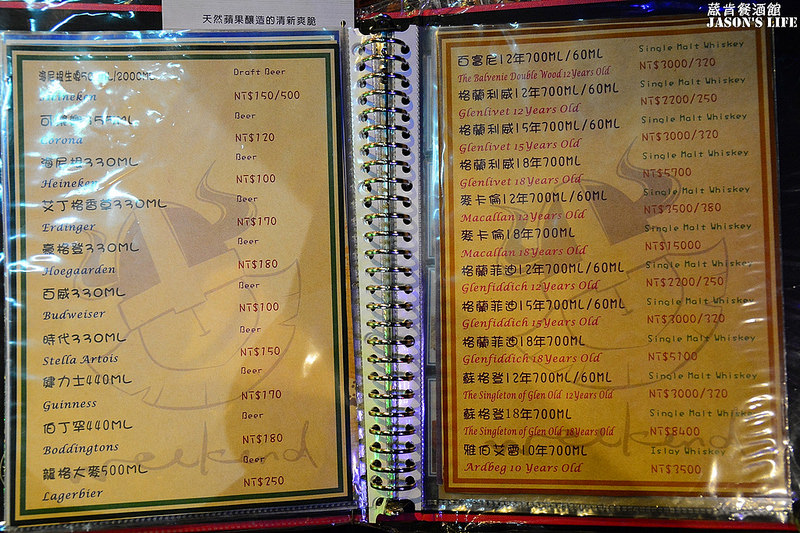 天然蘋果釀造的清新爽脆
葳肯餐酒館
JASON'S LIFE
海尼根生啤500ML/2000ML Draft Beer
Heineken NT$150/500
可樂娜355ML Beer
Corona NT$120
海尼根330ML Beer
Heineken NT$100
艾丁格香草330ML Beer
Erdinger NT$170
豪格登330ML Beer
Hoegaarden NT$180
百威330ML Beer
Budweiser NT$100
時代330ML Beer
Stella Artois NT$150
健力士440ML Beer
Guinness NT$170
伯丁罕440ML Beer
Boddingtons NT$180
龍格大麥500ML Beer
Lagerbier NT$250
weekend
百富尼12年700ML/60ML Single Malt Whiskey
The Balvenie Double Wood 12Years Old NT$3000/320
格蘭利威12年700ML/60ML Single Malt Whiskey
Glenlivet 12Years Old NT$2200/250
格蘭利威15年700ML/60ML Single Malt Whiskey
Glenlivet 15Years Old NT$3000/320
格蘭利威18年700ML Single Malt Whiskey
Glenlivet 18Years Old NT$5700
麥卡倫12年700ML/60ML Single Malt Whiskey
Macallan 12Years Old NT$3500/380
麥卡倫18年700ML Single Malt Whiskey
Macallan 18Years Old NT$15000
格蘭菲迪12年700ML/60ML Single Malt Whiskey
Glenfiddich 12Years Old NT$2200/250
格蘭菲迪15年700ML/60ML Single Malt Whiskey
Glenfiddich 15Years Old NT$3000/320
格蘭菲迪18年700ML Single Malt Whiskey
Glenfiddich 18Years Old NT$5100
蘇格登12年700ML/60ML Single Malt Whiskey
The Singleton of Glen Old 12Years Old NT$3000/320
蘇格登18年700ML Single Malt Whiskey
The Singleton of Glen Old 18Years Old NT$8400
雅伯艾雷10年700ML Islay Whiskey
Ardbeg 10 Years Old NT$3500
weekend